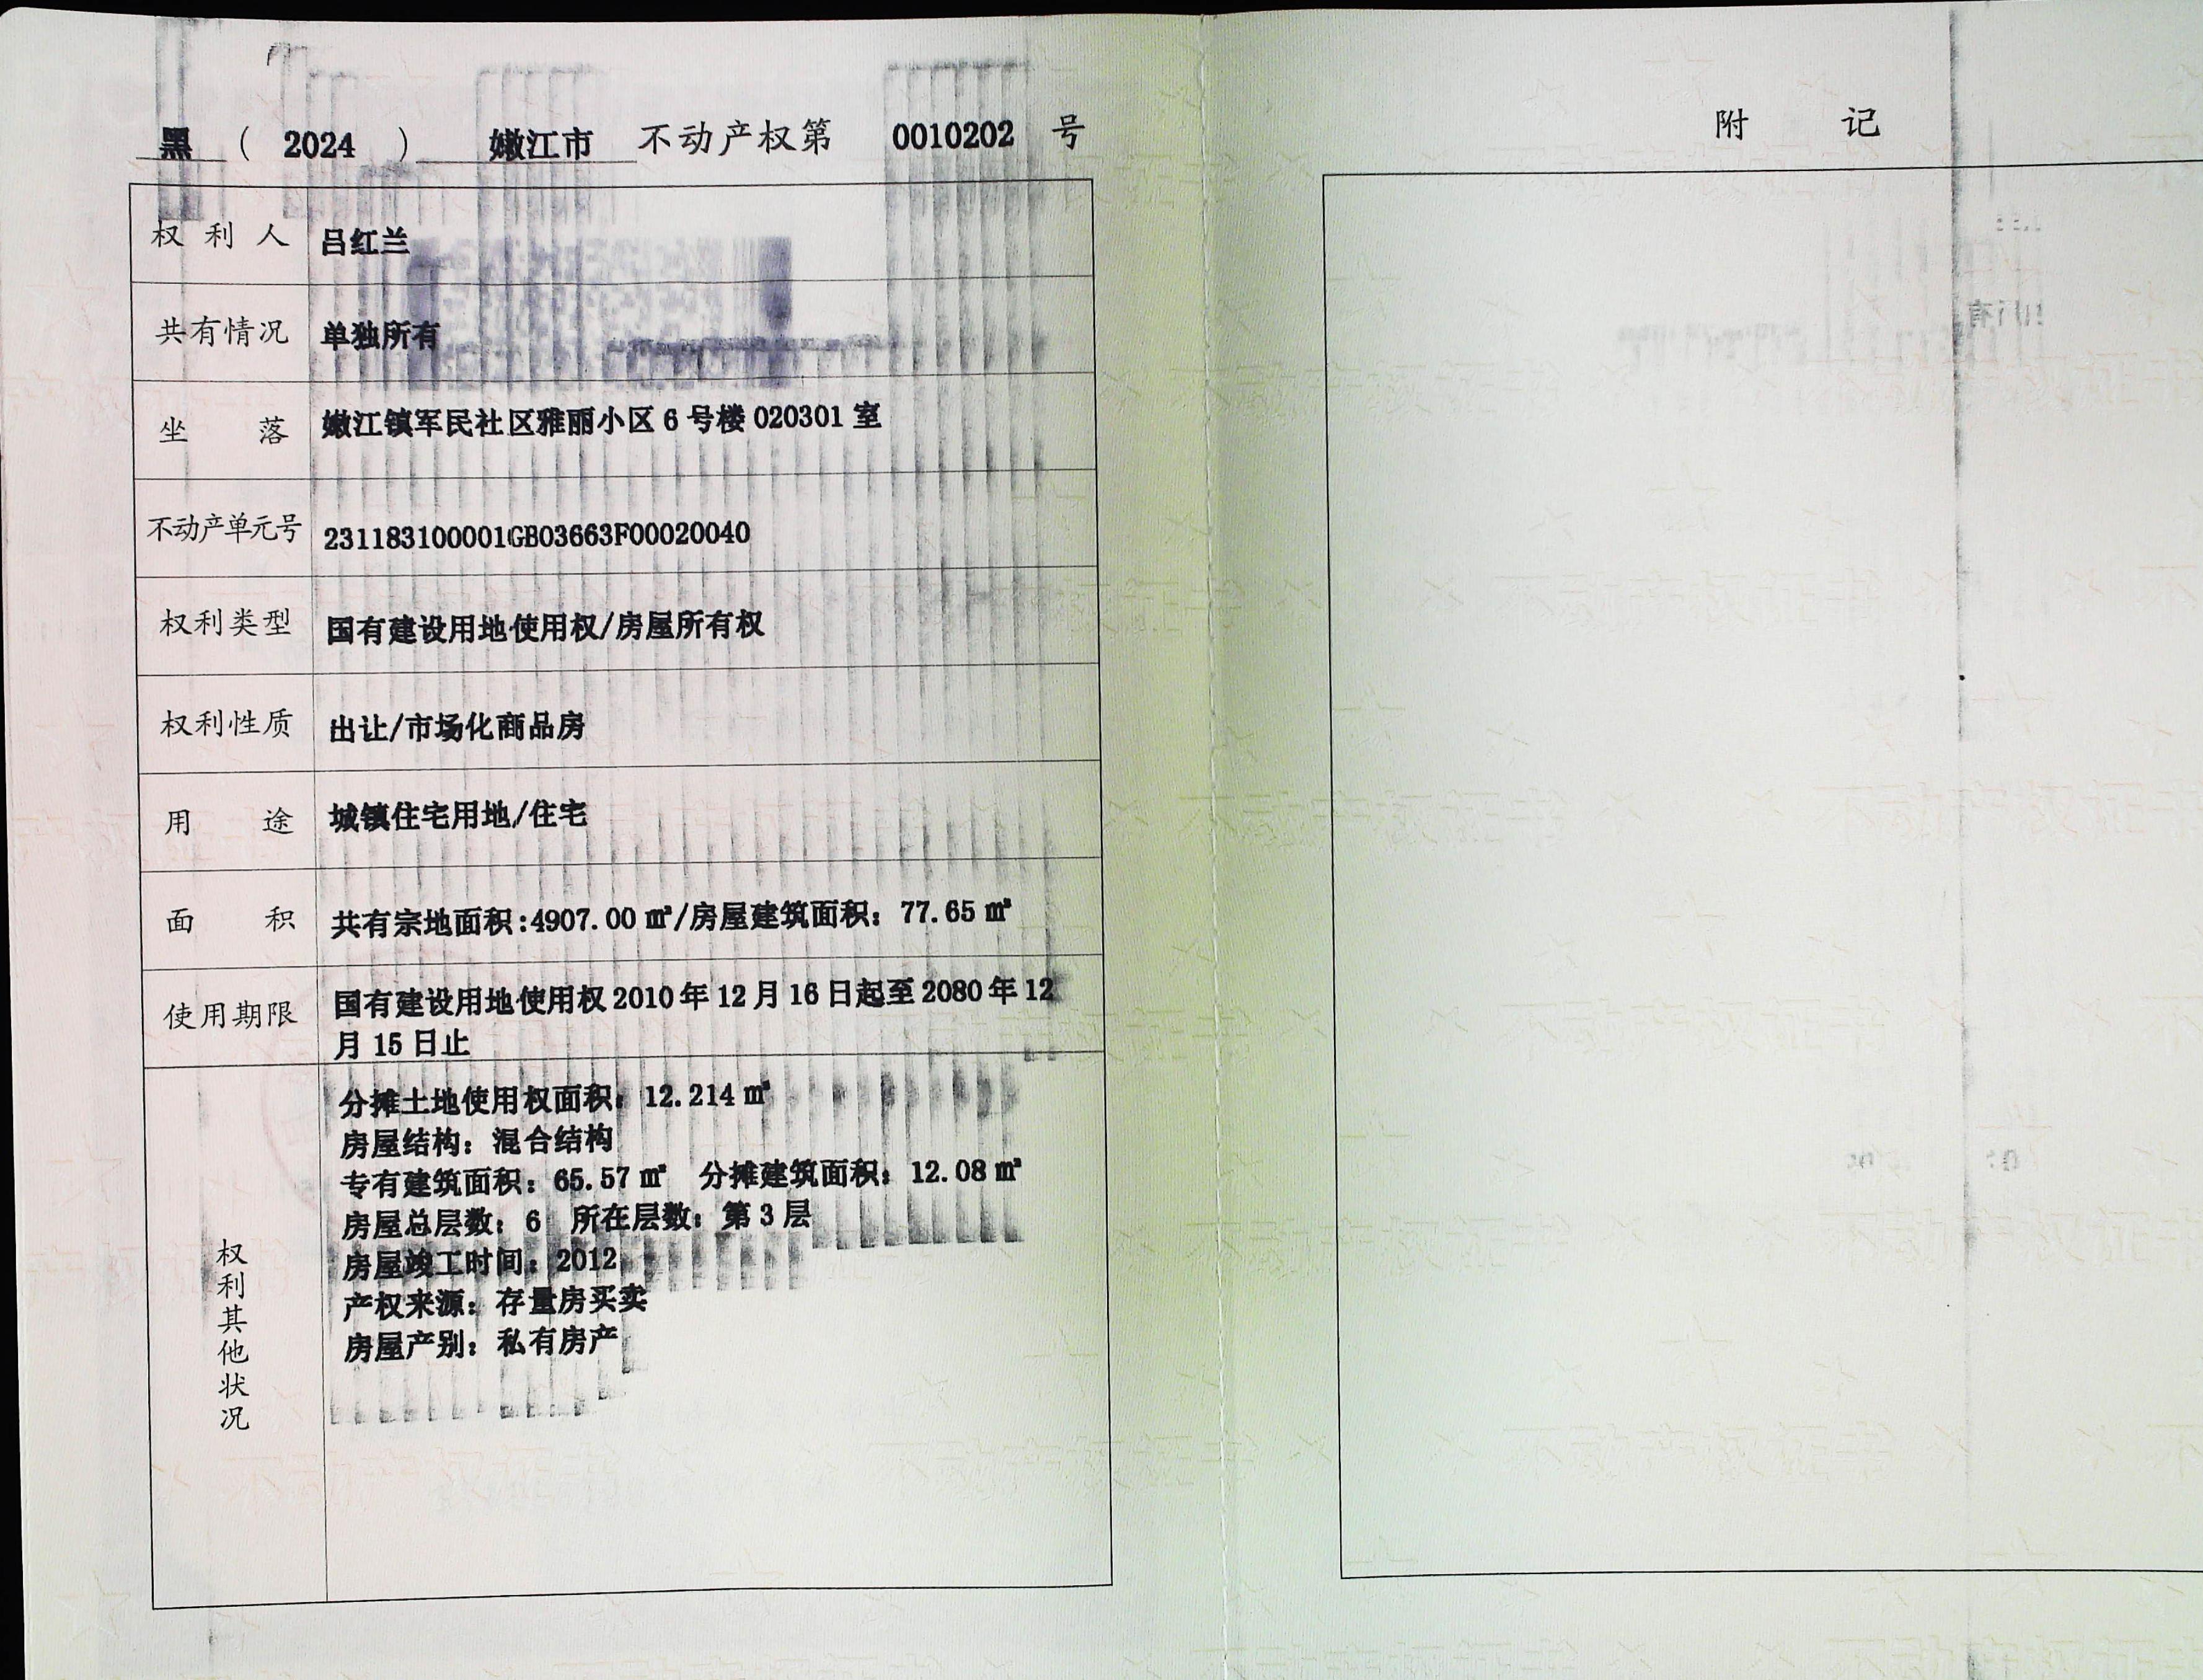 黑 ( 2024 ) 嫩江市 不动产权第 0010202 号
权利人 吕红兰
共有情况 单独所有
坐落 嫩江镇军民社区雅丽小区 6 号楼 020301 室
不动产单元号 231183100001GB03663F00020040
权利类型 国有建设用地使用权/房屋所有权
权利性质 出让/市场化商品房
用途 城镇住宅用地/住宅
面积 共有宗地面积:4907.00 ㎡/房屋建筑面积：77.65 ㎡
使用期限 国有建设用地使用权 2010 年 12 月 16 日起至 2080 年 12
月 15 日止
权利其他状况
分摊土地使用权面积：12.214 ㎡
房屋结构：混合结构
专有建筑面积：65.57 ㎡ 分摊建筑面积：12.08 ㎡
房屋总层数：6 所在层数：第 3 层
房屋竣工时间：2012
产权来源：存量房买卖
房屋产别：私有房产
附记